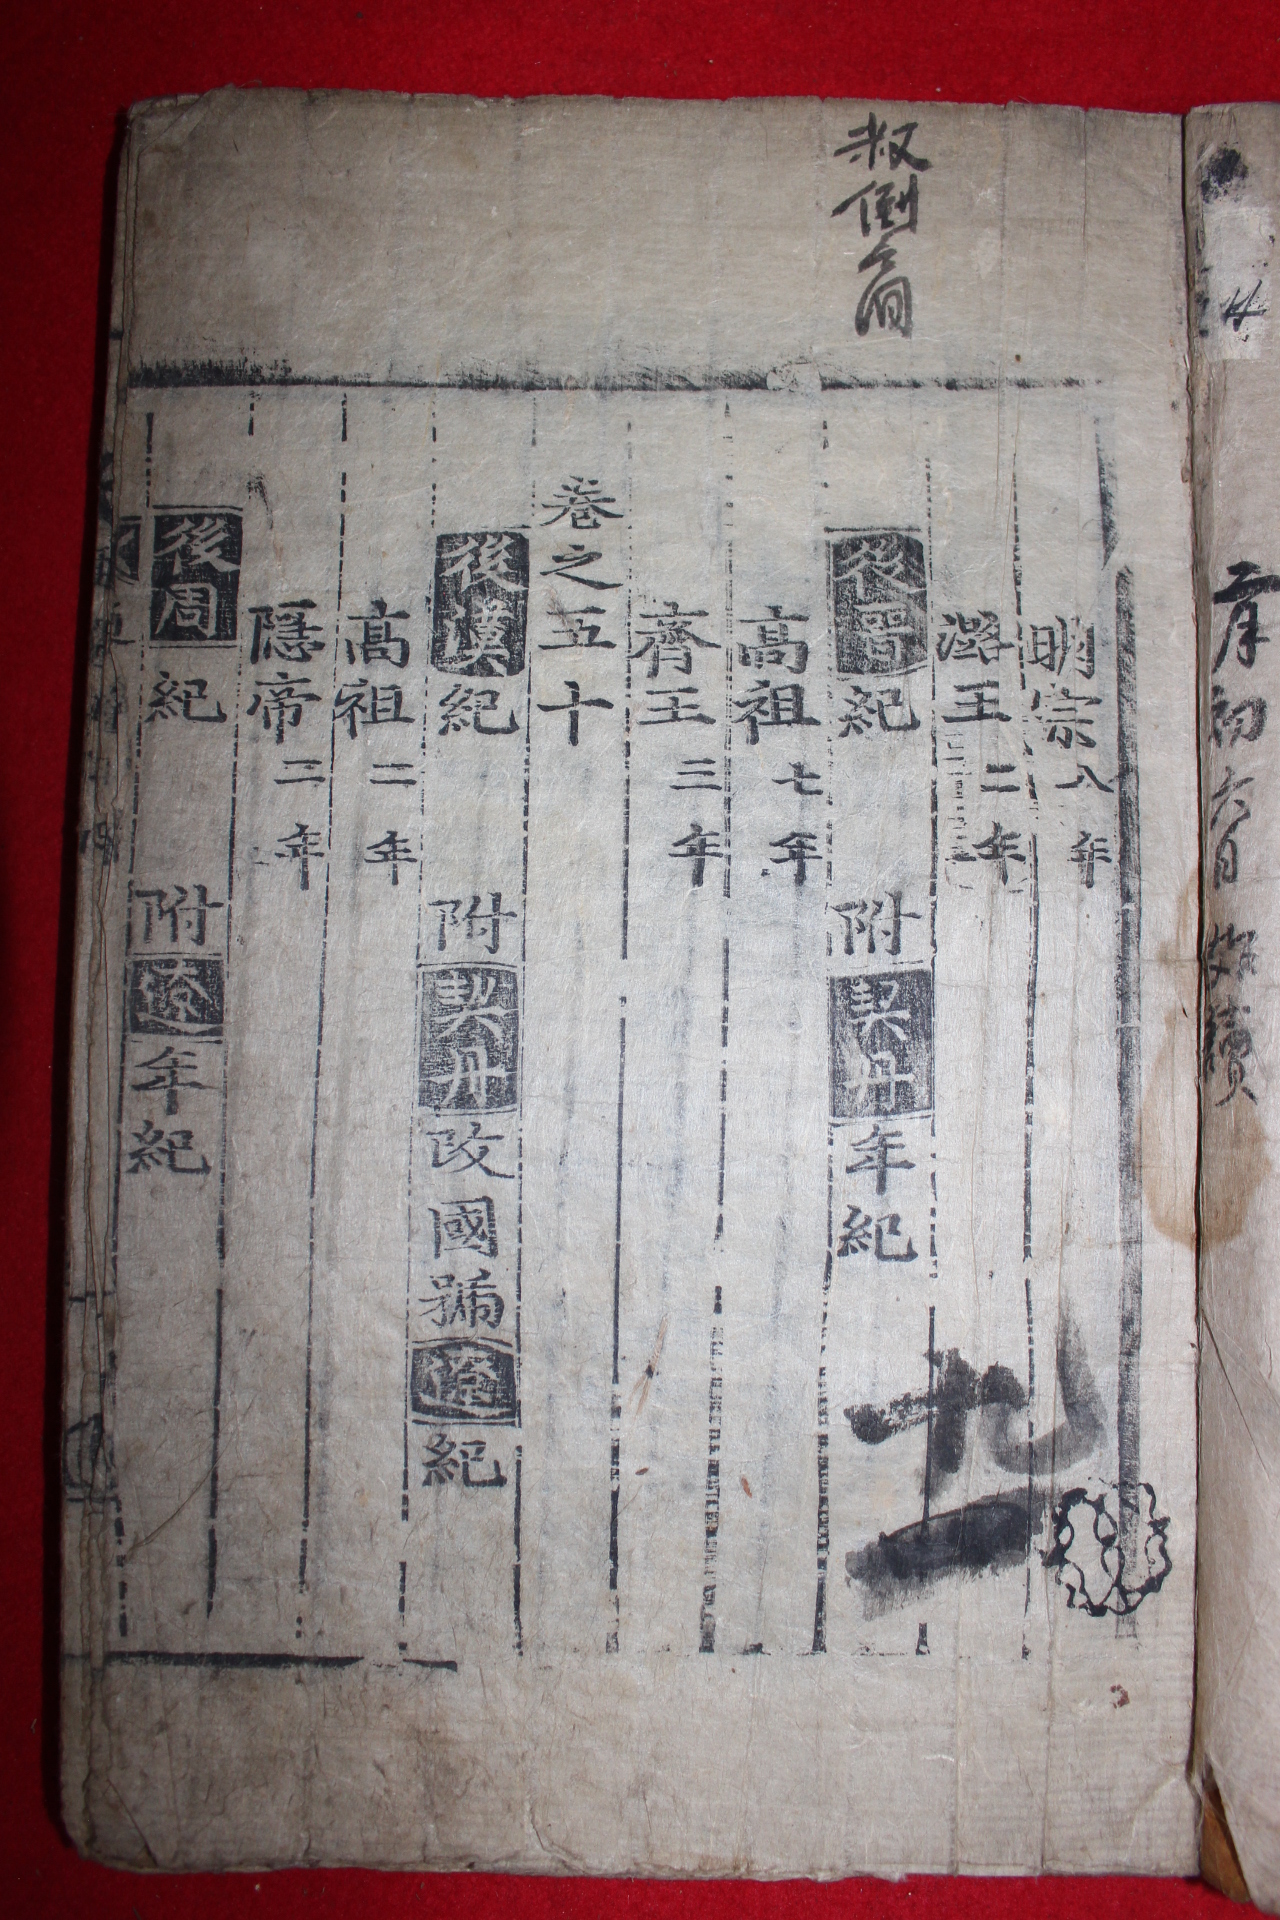 明宗八年
潞王二年
後晉紀 附契丹年紀
高祖七年
齊王三年
卷之五十
後漢紀 附契丹改國號遼紀
高祖二年
隱帝三年
後周紀 附遼年紀
九
初六日